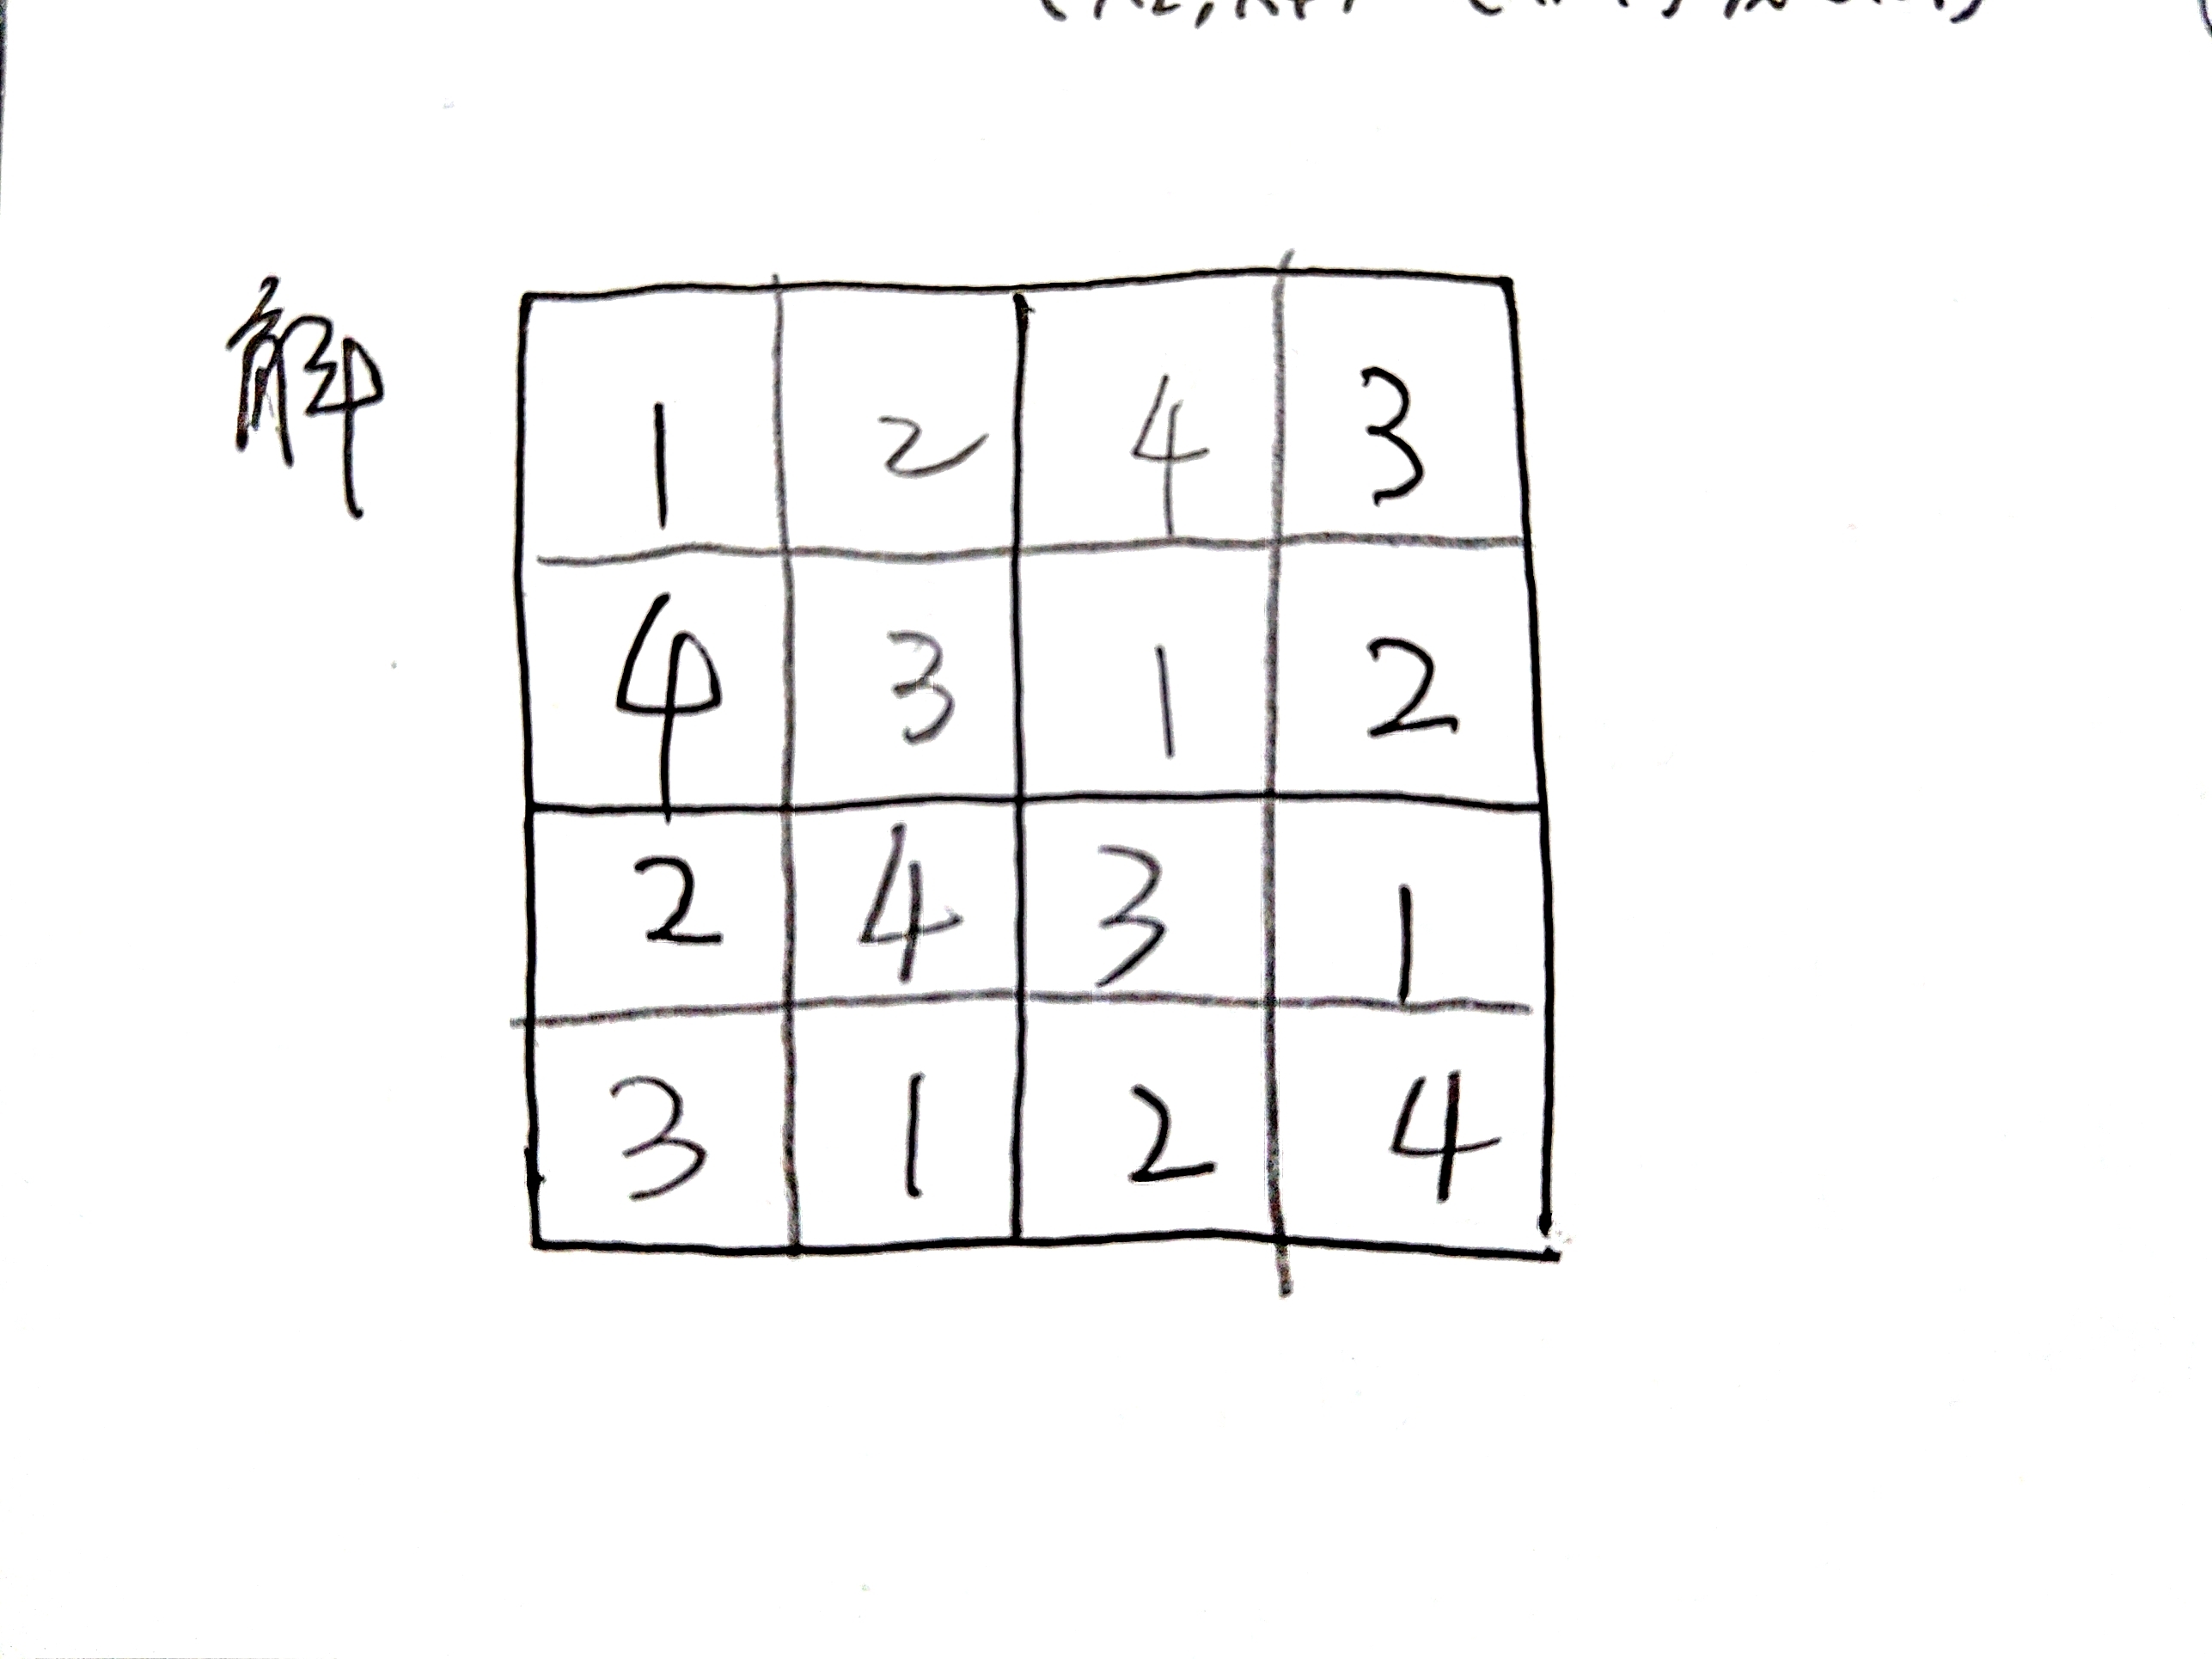 解
1 2 4 3
4 3 1 2
2 4 3 1
3 1 2 4